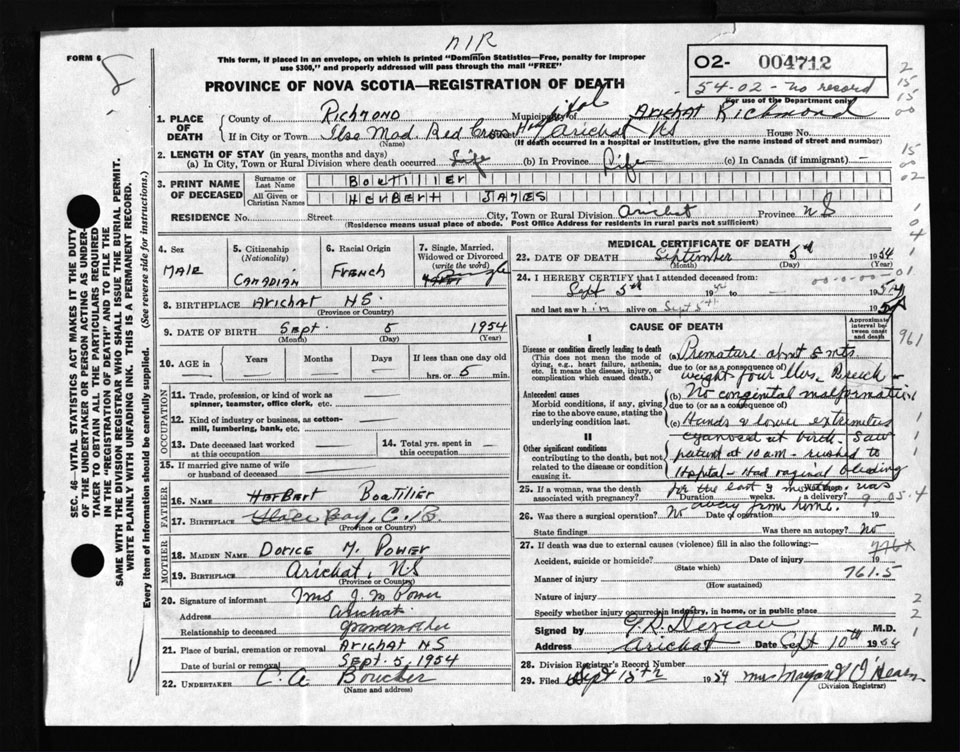 NIR
FORM 6
8
This form, if placed in an envelope, on which is printed "Dominion Statistics—Free, penalty for improper
use $300," and properly addressed will pass through the mail "FREE"
PROVINCE OF NOVA SCOTIA—REGISTRATION OF DEATH
02- 004712
54-02 - no record
For use of the Department only
1. PLACE OF DEATH
County of Richmond Municipality of Arichat Richmond
If in City or Town Ilse Mad. Red Cross Hospital Arichat NS House No.
(Name) (If death occurred in a hospital or institution, give name instead of street and number)
2. LENGTH OF STAY (in years, months and days)
(a) In City, Town or Rural Division where death occurred Life (b) In Province Life (c) In Canada (if immigrant) —
3. PRINT NAME OF DECEASED
Surname or Last Name BOUTILLIER
All Given or Christian Names HERBERT JAMES
RESIDENCE No. Street City, Town or Rural Division Arichat Province NS
(Residence means usual place of abode. Post Office Address for residents in rural parts not sufficient)
SEC. 46—VITAL STATISTICS ACT MAKES IT THE DUTY
OF THE UNDERTAKER OR PERSON ACTING AS UNDER-
TAKER TO OBTAIN ALL THE PARTICULARS REQUIRED
IN THE "REGISTRATION OF DEATH" AND TO FILE THE
SAME WITH THE DIVISION REGISTRAR WHO SHALL ISSUE THE BURIAL PERMIT.
WRITE PLAINLY WITH UNFADING INK. THIS IS A PERMANENT RECORD.
Every item of Information should be carefully supplied. (See reverse side for instructions.)
4. Sex
MALE
5. Citizenship
(Nationality)
CANADIAN
6. Racial Origin
FRENCH
7. Single, Married, Widowed or Divorced
(write the word)
Single
8. BIRTHPLACE Arichat NS.
(Province or Country)
9. DATE OF BIRTH Sept. 5 1954
(Month) (Day) (Year)
10. AGE IN Years Months Days If less than one day old
hrs. or 5 min.
OCCUPATION
11. Trade, profession, or kind of work as
spinner, teamster, office clerk, etc.
12. Kind of industry or business, as cotton-
mill, lumbering, bank, etc.
13. Date deceased last worked
at this occupation
14. Total yrs. spent in
this occupation
15. If married give name of wife
or husband of deceased
FATHER
16. NAME Herbert Boatilier
17. BIRTHPLACE Glace Bay, C.B.
(Province or Country)
MOTHER
18. MAIDEN NAME DORICE M. POWER
19. BIRTHPLACE Arichat, NS
(Province or Country)
20. Signature of informant Mrs J. M Power
Address Arichat
Relationship to deceased Grandmother
21. Place of burial, cremation or removal ARICHAT NS
Date of burial or removal SEPT. 5, 1954
22. UNDERTAKER C. A Boucher
(Name and address)
MEDICAL CERTIFICATE OF DEATH
23. DATE OF DEATH September 5th 1954
(Month) (Day) (Year)
24. I HEREBY CERTIFY that I attended deceased from:
Sept 5th 19 to — 1954
and last saw him alive on Sept 5th 1954
CAUSE OF DEATH
Approximate interval between onset and death
I
Disease or condition directly leading to death
(This does not mean the mode of
dying, e.g., heart failure, asthenia,
etc. It means the disease, injury, or
complication which caused death.)
(a) Premature abnt 8 mts.
due to (or as a consequence of)
weight four lbs. Breech -
Antecedent causes
Morbid conditions, if any, giving
rise to the above cause, stating the
underlying condition last.
(b) No congenital malformation
due to (or as a consequence of)
(c) Hands & lower extremities
II
Other significant conditions
contributing to the death, but not
related to the disease or condition
causing it.
cyanosed at birth. Saw
patient at 10 am - rushed to
Hospital - Had vaginal bleeding
for the last 3 months. was
away from home.
25. If a woman, was the death
associated with pregnancy? Duration weeks. a delivery?
26. Was there a surgical operation? No Date of operation 19
State findings Was there an autopsy? No
27. If death was due to external causes (violence) fill in also the following:—
Accident, suicide or homicide? Date of injury 19
(State which)
Manner of injury 761.5
(How sustained)
Nature of injury
Specify whether injury occurred in industry, in home, or in public place
Signed by M.D.
Address Arichat Date Sept 10th 1954
28. Division Registrar's Record Number
29. Filed Sept 15th 1954
(Division Registrar)
961